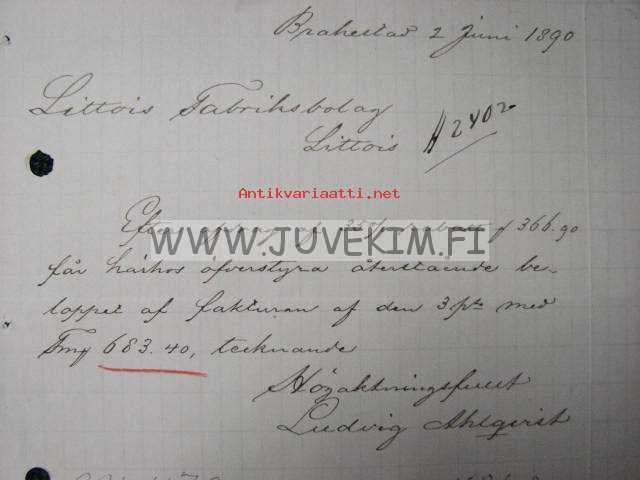 Brahestad 2 Juni 1890
Littois Fabriksbolag
Littois
2402
Antikvariaatti.net
Efter afdrag af 35% rabatt f 366.90
WWW.JUVEKIM.FI
får härhos öfverstyra återstående be-
loppet af fakturan af den 3 pto med
Fmf 683.40, tecknande
Högaktningsfullt
Ludvig Ahlqvist